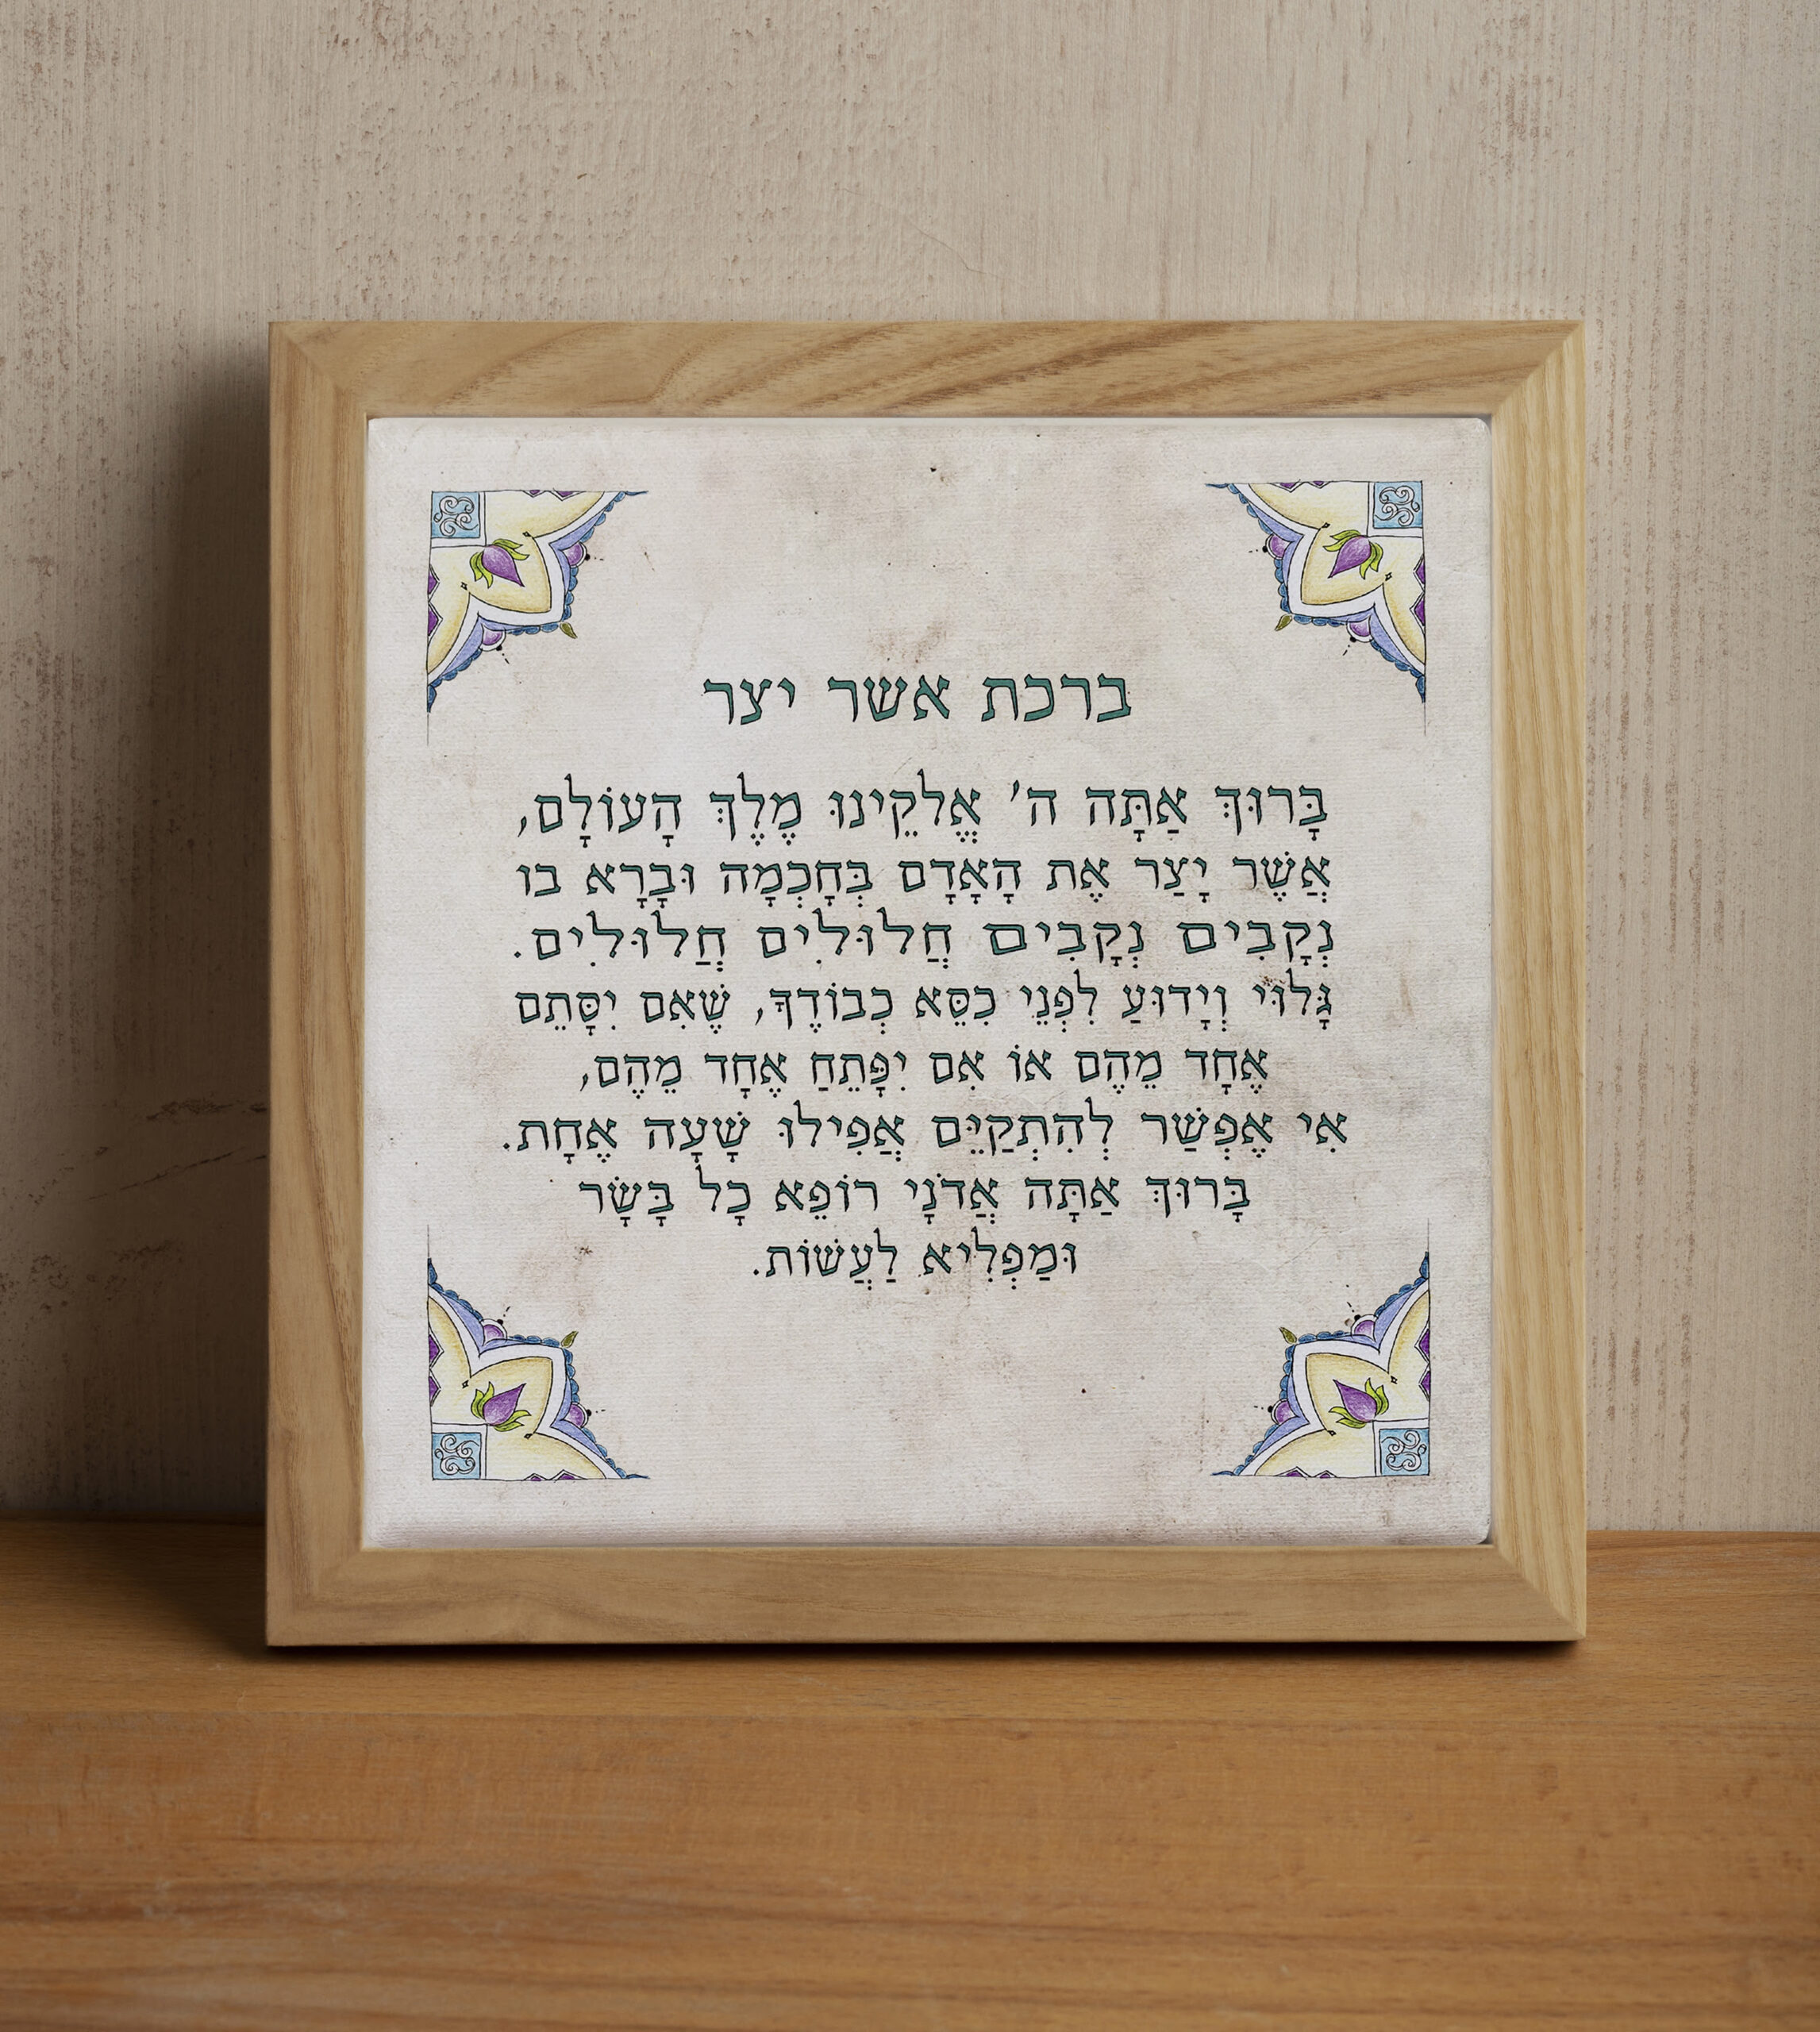 ברכת אשר יצר
בָּרוּךְ אַתָּה ה' אֱלֹקֵינוּ מֶלֶךְ הָעוֹלָם,
אֲשֶׁר יָצַר אֶת הָאָדָם בְּחָכְמָה וּבָרָא בו
נְקָבִים נְקָבִים חֲלוּלִים חֲלוּלִים.
גָּלוּי וְיָדוּעַ לִפְנֵי כִסֵּא כְבוֹדֶךָ, שֶׁאִם יִסָּתֵם
אֶחָד מֵהֶם אוֹ אִם יִפָּתֵחַ אֶחָד מֵהֶם,
אִי אֶפְשַׁר לְהִתְקַיֵּם אֲפִילוּ שָׁעָה אֶחָת.
בָּרוּךְ אַתָּה אֲדֹנָי רוֹפֵא כָל בָּשָׂר
וּמַפְלִיא לַעֲשׂוֹת.